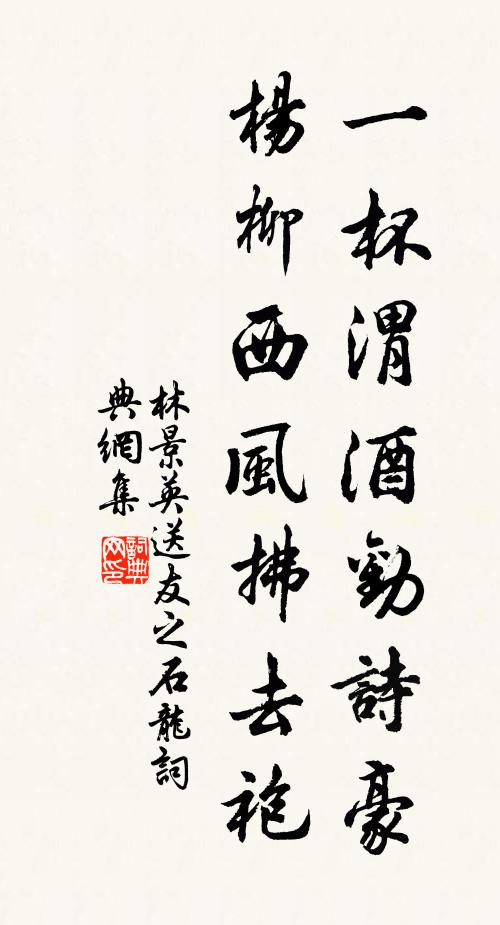 一杯渭酒勸詩豪
楊柳西風拂去袍
林景英送友之石龍詞
典網集
詞典
网印